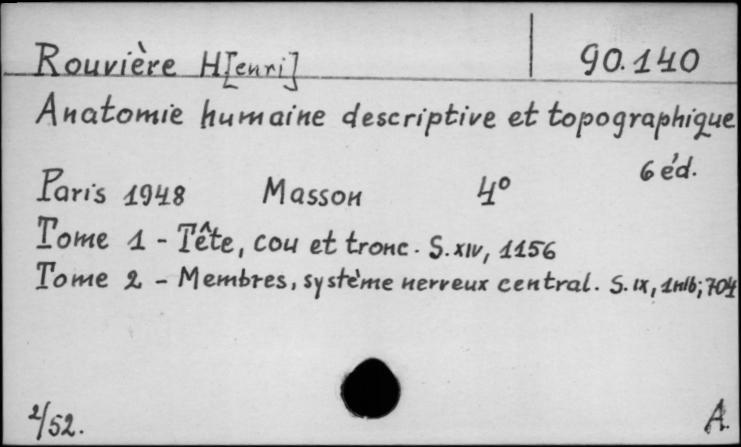 Rouvière H[enri] 90.140
Anatomie humaine descriptive et topographique
6 éd.
Paris 1948 Masson 4°
Tome 1 - Tête, cou et tronc. S. XIV, 1156
Tome 2 - Membres, système nerveux central. S. IX, 1nlb; 704
2/52. A.